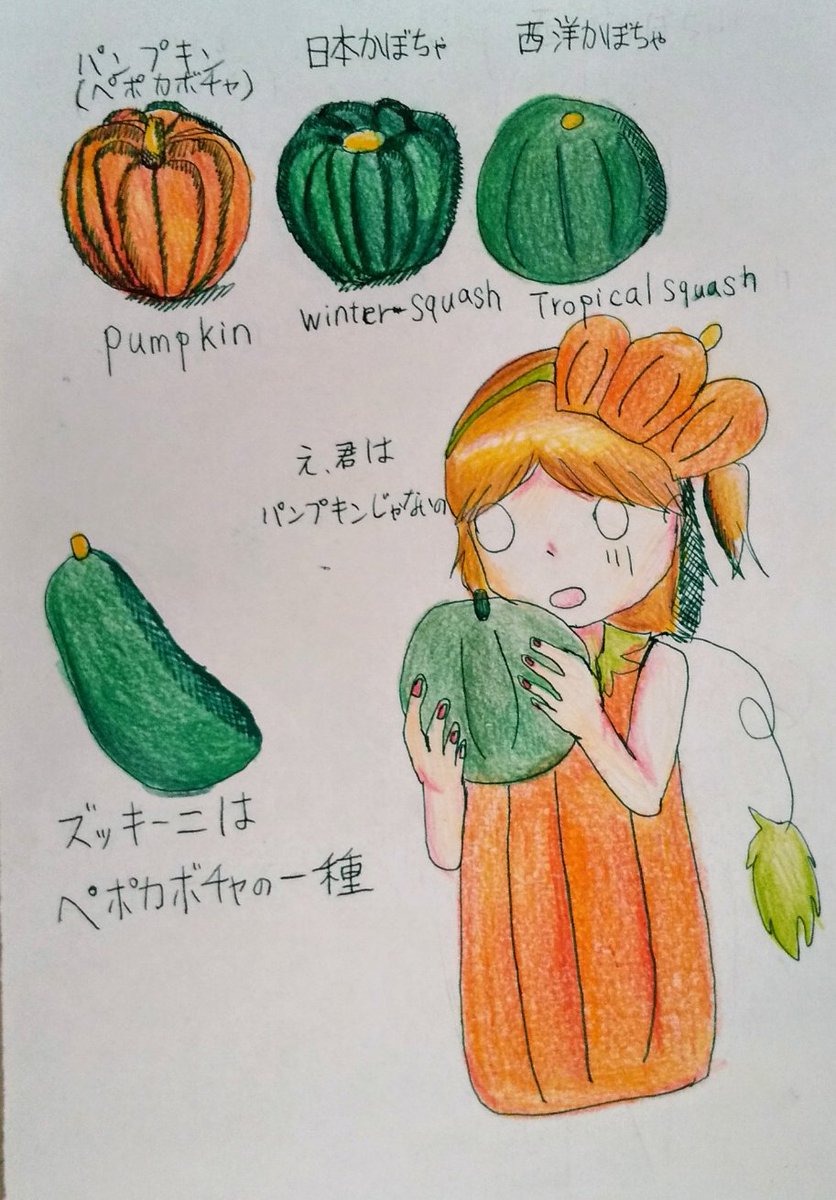 パンプキン
(ペポカボチャ)
日本かぼちゃ
西洋かぼちゃ
pumpkin
winter-squash
Tropical squash
え、君は
パンプキンじゃないの
ズッキーニは
ペポカボチャの一種